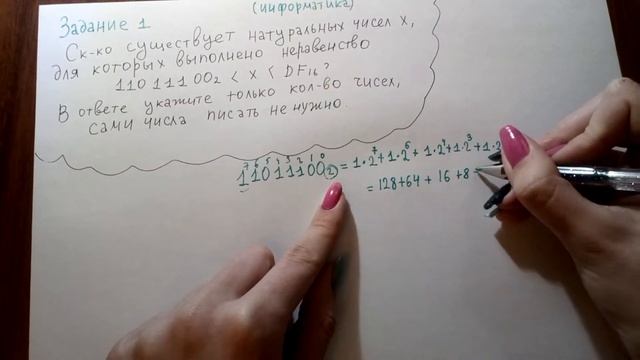 (информатика)
Задание 1
Ск-ко существует натуральных чисел x,
для которых выполнено неравенство
110 111 00₂ < x < DF₁₆?
В ответе укажите только кол-во чисел,
сами числа писать не нужно.
7 6 5 4 3 2 1 0
11011100₂ = 1·2⁷+1·2⁶+1·2⁴+1·2³+1·2
= 128+64+16+8